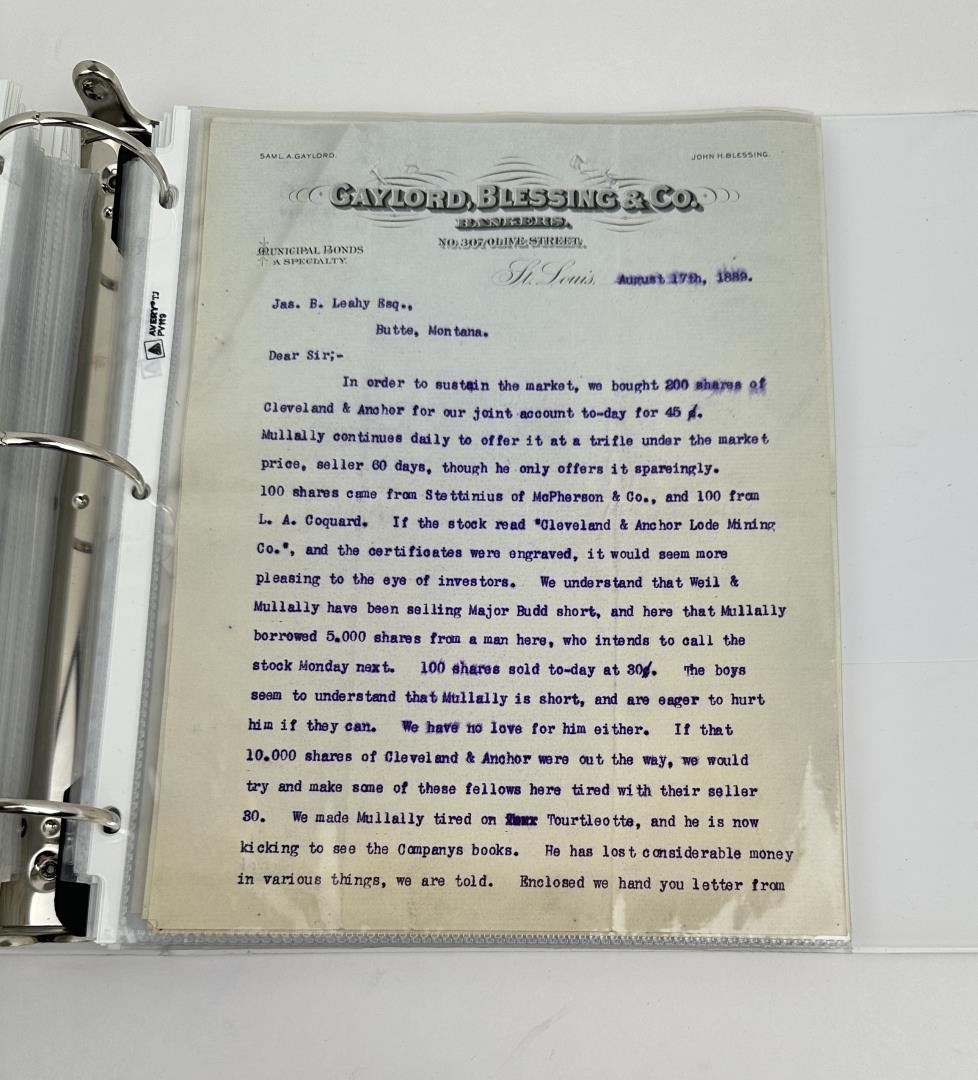 SAML. A. GAYLORD.
JOHN H. BLESSING.
GAYLORD, BLESSING & CO.
BANKERS.
NO. 307 OLIVE STREET.
MUNICIPAL BONDS
A SPECIALTY.
St. Louis, August 17th, 1889.
Jas. B. Leahy Esq.,
Butte, Montana.
Dear Sir;-
In order to sustain the market, we bought 200 shares of
Cleveland & Anchor for our joint account to-day for 45 ¢.
Mullally continues daily to offer it at a trifle under the market
price, seller 60 days, though he only offers it spareingly.
100 shares came from Stettinius of McPherson & Co., and 100 from
L. A. Coquard. If the stock read "Cleveland & Anchor Lode Mining
Co.", and the certificates were engraved, it would seem more
pleasing to the eye of investors. We understand that Weil &
Mullally have been selling Major Budd short, and here that Mullally
borrowed 5.000 shares from a man here, who intends to call the
stock Monday next. 100 shares sold to-day at 30¢. The boys
seem to understand that Mullally is short, and are eager to hurt
him if they can. We have no love for him either. If that
10.000 shares of Cleveland & Anchor were out the way, we would
try and make some of these fellows here tired with their seller
30. We made Mullally tired on Tourtleotte, and he is now
kicking to see the Companys books. He has lost considerable money
in various things, we are told. Enclosed we hand you letter from
AVERY® TJ
PV119